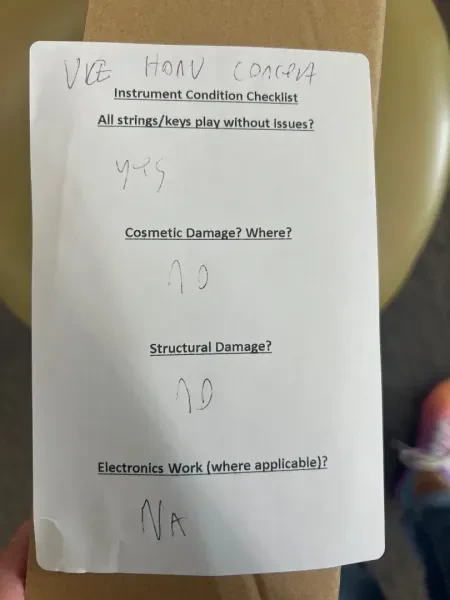 UKE HONU CONCERT
Instrument Condition Checklist
All strings/keys play without issues?
yes
Cosmetic Damage? Where?
no
Structural Damage?
no
Electronics Work (where applicable)?
NA